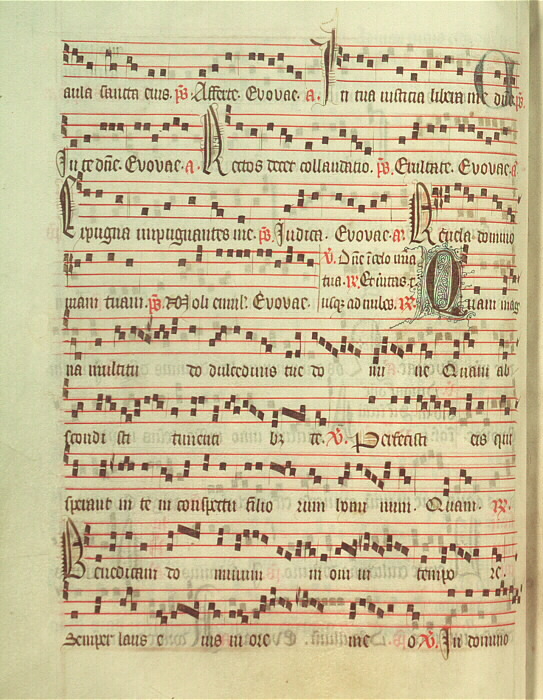 aula sancta eius. ps. Afferte. Evovae. a. In tua iusticia libera me dne. ps.
In te dne. Evovae. a. Rectos decet collaudatio. ps. Exultate. Evovae. a.
Expugna inpugnantes me. ps. Judica. Evovae. a. Revela domino
viam tuam. ps. Noli emul. Evovae.
V. Dne in celo mia
tua. R. Et veritas t.
usq; ad nubes. R. Quam mag
na multitu do dulcedinis tue do mi ne Quam ab
scondi sti timenti bz te. V. Perfecisti eis qui
sperant in te in conspectu filio rum homi num. Quam. R.
Benedicam do minum in om ni tempo re.
Semper laus e ius in ore me o V. In domino